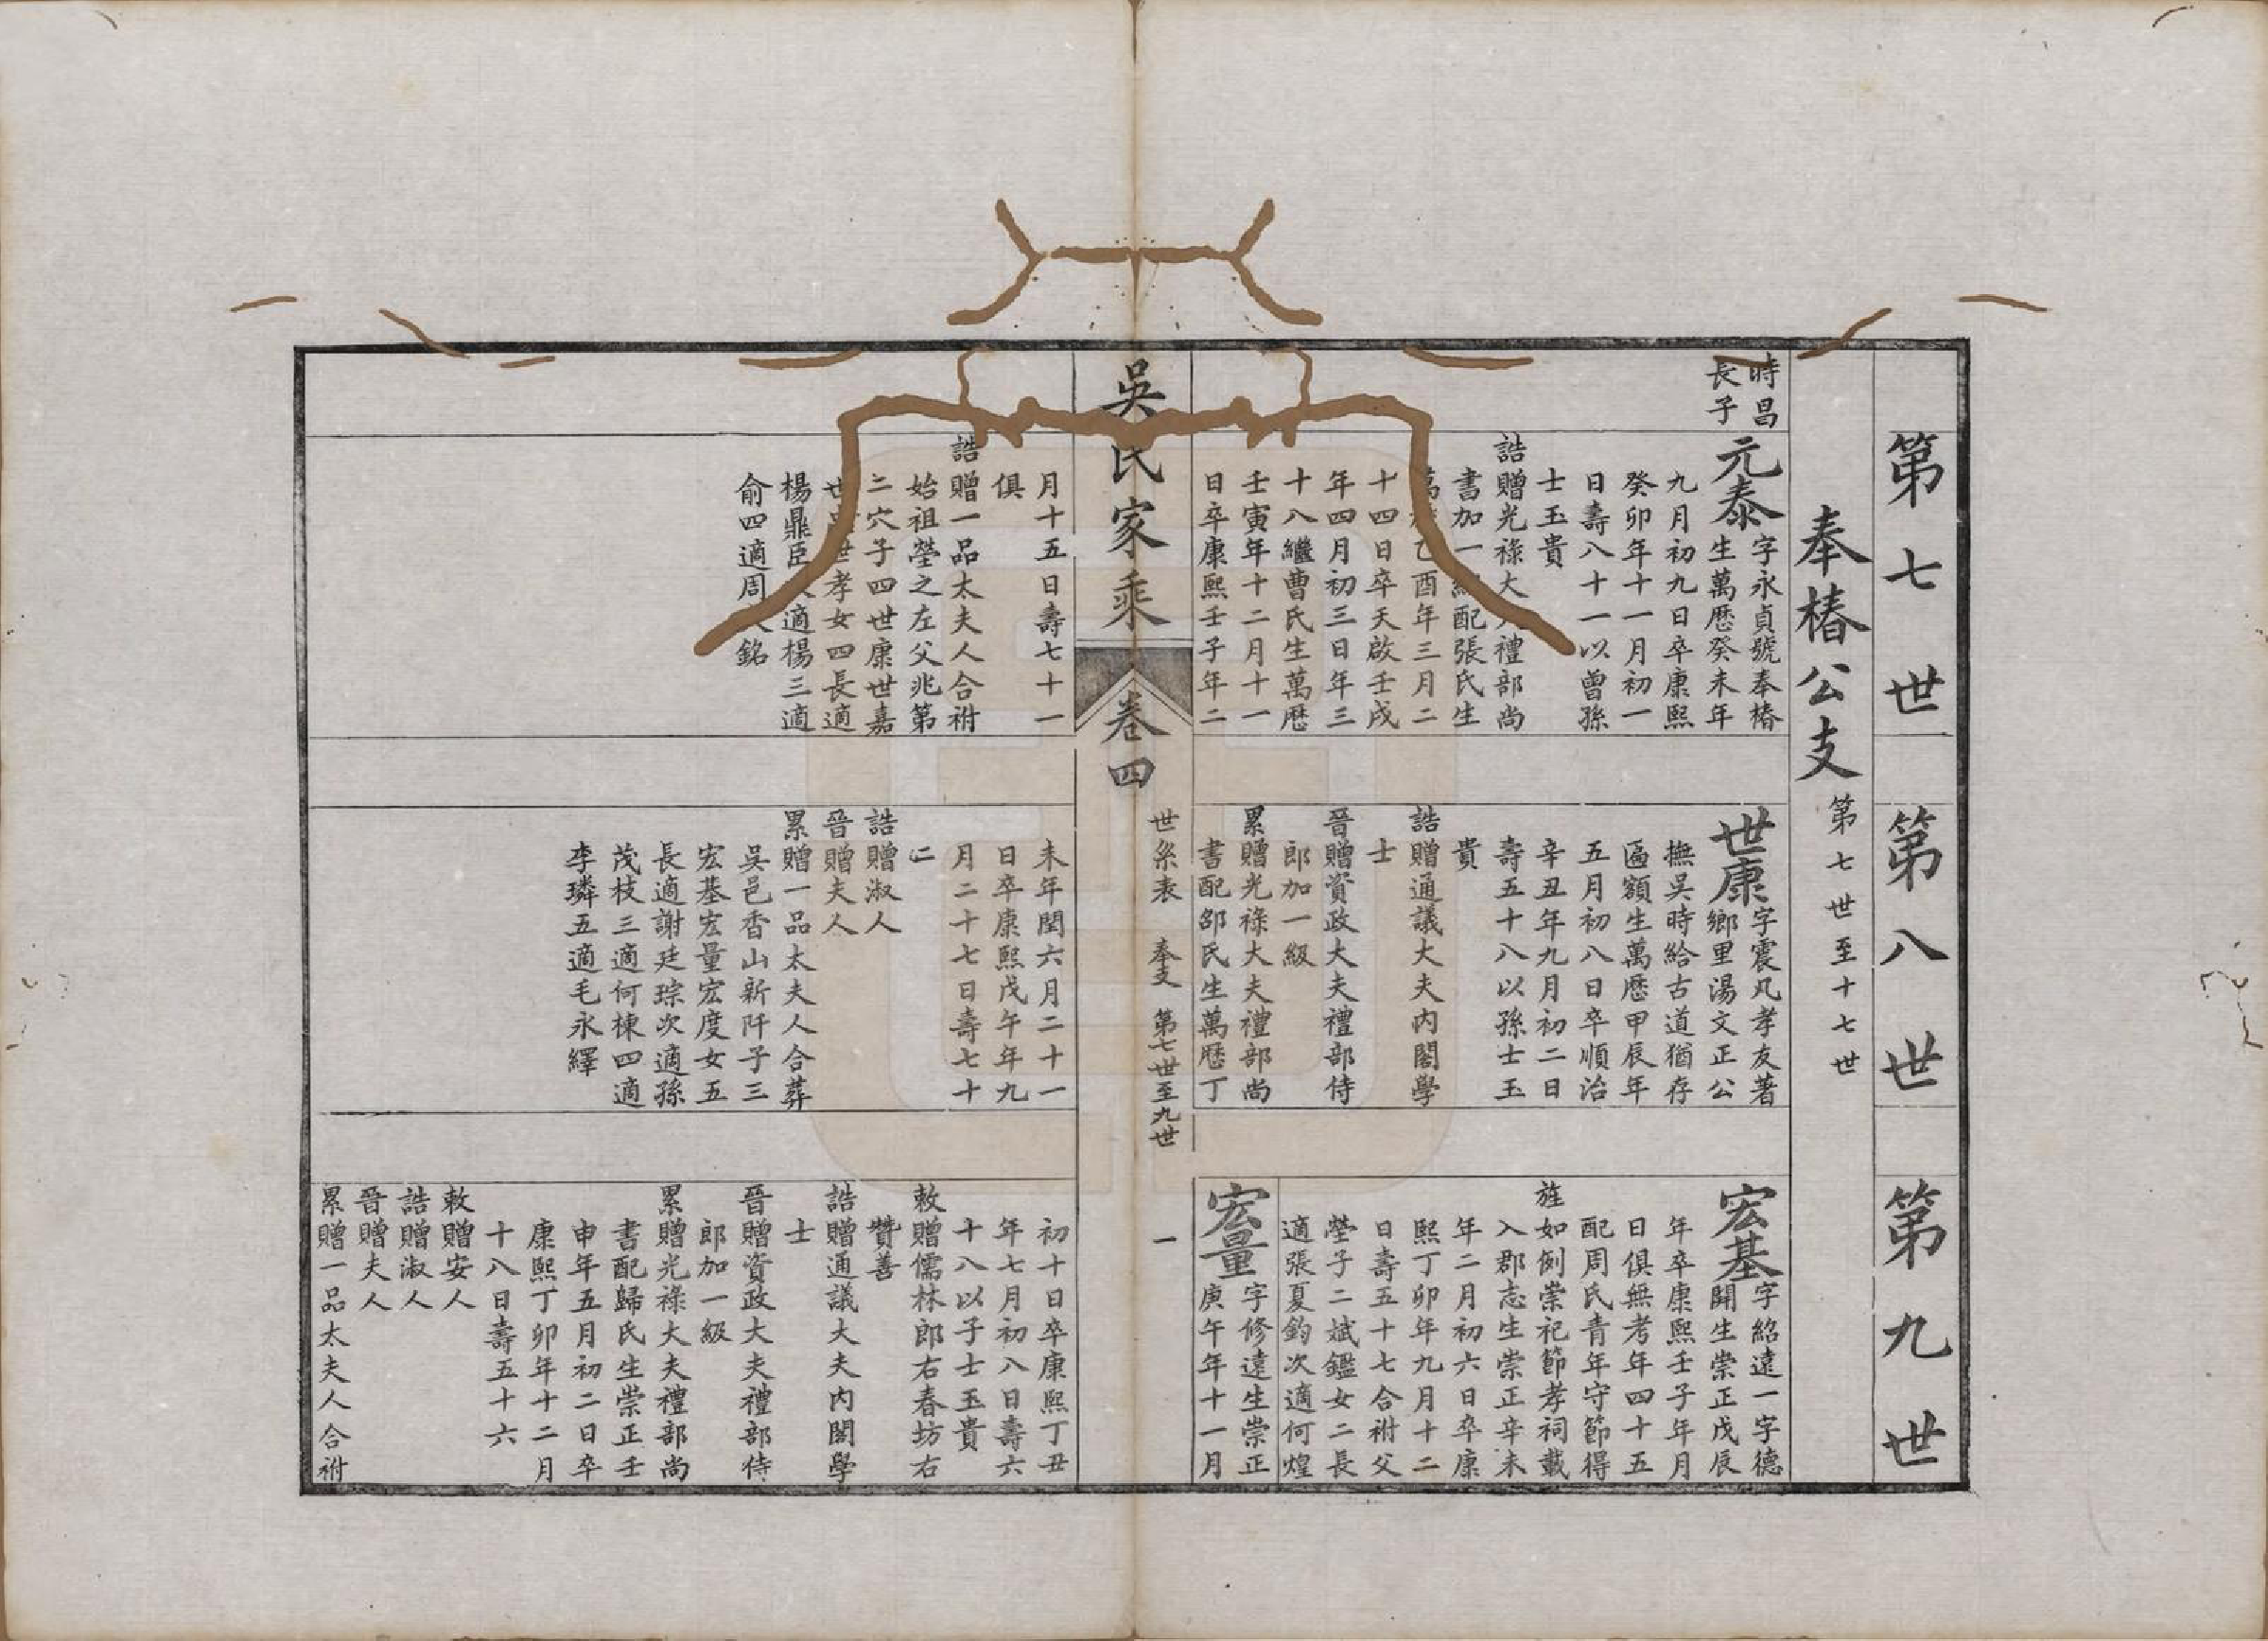 第七世
第八世
第九世
奉椿公支
第七世至十七世
時昌
長子
元泰
字永貞號奉椿
生萬歷癸未年
九月初九日卒康熙
癸卯年十一月初一
日壽八十一以曾孫
士玉貴
誥贈光祿大 禮部尚
書加一 配張氏生
乙酉年三月二
十四日卒天啟壬戌
年四月初三日年三
十八繼曹氏生萬歷
壬寅年十二月十一
日卒康熙壬子年二
世康
字震凡孝友著
鄉里湯文正公
撫吳時給古道猶存
匾額生萬歷甲辰年
五月初八日卒順治
辛丑年九月初二日
壽五十八以孫士玉
貴
誥贈通議大夫內閣學
士
晉贈資政大夫禮部侍
郎加一級
累贈光祿大夫禮部尚
書配邵氏生萬歷丁
宏基
字紹遠一字德
開生崇正戊辰
年卒康熙壬子年月
日俱無考年四十五
配周氏青年守節得
旌如例崇祀節孝祠載
入郡志生崇正辛未
年二月初六日卒康
熙丁卯年九月十二
日壽五十七合祔父
塋子二斌鑑女二長
適張夏鈞次適何煌
宏量
字修遠生崇正
庚午年十一月
吳氏家乘
卷四
世系表 奉支 第七世至九世
一
月十五日壽七十一
俱
誥贈一品太夫人合祔
始祖塋之左父兆第
二穴子四世康世嘉
世 世孝女四長適
楊鼎臣 適楊三適
俞四適周 銘
未年閏六月二十一
日卒康熙戊午年九
月二十七日壽七十
二
誥贈淑人
晉贈夫人
累贈一品太夫人合葬
吳邑香山新阡子三
宏基宏量宏度女五
長適謝廷琮次適孫
茂枝三適何棟四適
李璘五適毛永繹
初十日卒康熙丁丑
年七月初八日壽六
十八以子士玉貴
敕贈儒林郎右春坊右
贊善
誥贈通議大夫內閣學
士
晉贈資政大夫禮部侍
郎加一級
累贈光祿大夫禮部尚
書配歸氏生崇正壬
申年五月初二日卒
康熙丁卯年十二月
十八日壽五十六
敕贈安人
誥贈淑人
晉贈夫人
累贈一品太夫人合祔